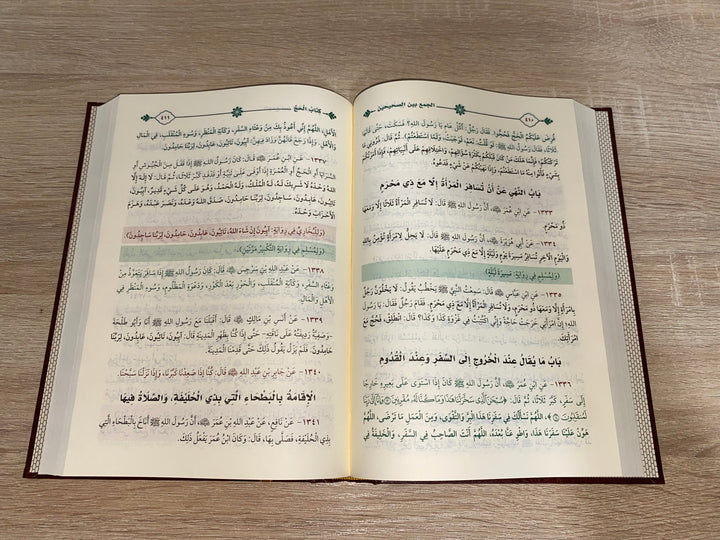 ٤١٠
الجمع بين الصحيحين
فُرِضَ عَلَيْكُمُ الْحَجُّ فَحُجُّوا. فَقَالَ رَجُلٌ: أَكُلَّ عَامٍ يَا رَسُولَ اللهِ؟ فَسَكَتَ، حَتَّى قَالَهَا
ثَلَاثًا، فَقَالَ رَسُولُ اللهِ ﷺ: لَوْ قُلْتُ: نَعَمْ، لَوَجَبَتْ، وَلَمَا اسْتَطَعْتُمْ. ثُمَّ قَالَ: ذَرُونِي مَا
تَرَكْتُكُمْ، فَإِنَّمَا هَلَكَ مَنْ كَانَ قَبْلَكُمْ بِكَثْرَةِ سُؤَالِهِمْ، وَاخْتِلَافِهِمْ عَلَى أَنْبِيَائِهِمْ، فَإِذَا أَمَرْتُكُمْ
بِشَيْءٍ فَأْتُوا مِنْهُ مَا اسْتَطَعْتُمْ، وَإِذَا نَهَيْتُكُمْ عَنْ شَيْءٍ فَدَعُوهُ.
بَابُ النَّهْيِ عَنْ أَنْ تُسَافِرَ الْمَرْأَةُ إِلَّا مَعَ ذِي مَحْرَمٍ
١٣٣٣- عَنِ ابْنِ عُمَرَ ﷺ، أَنَّ رَسُولَ اللهِ ﷺ قَالَ: لَا تُسَافِرِ الْمَرْأَةُ ثَلَاثًا إِلَّا وَمَعَهَا
ذُو مَحْرَمٍ.
١٣٣٤- عَنْ أَبِي هُرَيْرَةَ، أَنَّ رَسُولَ اللهِ ﷺ قَالَ: لَا يَحِلُّ لِامْرَأَةٍ تُؤْمِنُ بِاللهِ
وَالْيَوْمِ الْآخِرِ تُسَافِرُ مَسِيرَةَ يَوْمٍ وَلَيْلَةٍ إِلَّا مَعَ ذِي مَحْرَمٍ عَلَيْهَا.
(وَلِمُسْلِمٍ فِي رِوَايَةٍ: مَسِيرَةَ لَيْلَةٍ).
١٣٣٥- عَنِ ابْنِ عَبَّاسٍ قَالَ: سَمِعْتُ النَّبِيَّ ﷺ يَخْطُبُ يَقُولُ: لَا يَخْلُوَنَّ رَجُلٌ
بِامْرَأَةٍ إِلَّا وَمَعَهَا ذُو مَحْرَمٍ، وَلَا تُسَافِرِ الْمَرْأَةُ إِلَّا مَعَ ذِي مَحْرَمٍ. فَقَامَ رَجُلٌ فَقَالَ: يَا رَسُولَ
اللهِ، إِنَّ امْرَأَتِي خَرَجَتْ حَاجَّةً وَإِنِّي اكْتُتِبْتُ فِي غَزْوَةِ كَذَا وَكَذَا؟ قَالَ: انْطَلِقْ، فَحُجَّ مَعَ
امْرَأَتِكَ.
بَابُ مَا يُقَالُ عِنْدَ الْخُرُوجِ إِلَى السَّفَرِ وَعِنْدَ الْقُدُومِ
١٣٣٦- عَنِ ابْنِ عُمَرَ، أَنَّ رَسُولَ اللهِ ﷺ كَانَ إِذَا اسْتَوَى عَلَى بَعِيرِهِ خَارِجًا
إِلَى سَفَرٍ، كَبَّرَ ثَلَاثًا، ثُمَّ قَالَ: ﴿سُبْحَانَ الَّذِي سَخَّرَ لَنَا هَذَا وَمَا كُنَّا لَهُ مُقْرِنِينَ وَإِنَّا إِلَى رَبِّنَا
لَمُنْقَلِبُونَ﴾، اللَّهُمَّ إِنَّا نَسْأَلُكَ فِي سَفَرِنَا هَذَا الْبِرَّ وَالتَّقْوَى، وَمِنَ الْعَمَلِ مَا تَرْضَى، اللَّهُمَّ
هَوِّنْ عَلَيْنَا سَفَرَنَا هَذَا، وَاطْوِ عَنَّا بُعْدَهُ، اللَّهُمَّ أَنْتَ الصَّاحِبُ فِي السَّفَرِ، وَالْخَلِيفَةُ فِي
كتاب الحج
٤١١
الْأَهْلِ، اللَّهُمَّ إِنِّي أَعُوذُ بِكَ مِنْ وَعْثَاءِ السَّفَرِ، وَكَآبَةِ الْمَنْظَرِ، وَسُوءِ الْمُنْقَلَبِ، فِي الْمَالِ
وَالْأَهْلِ. وَإِذَا رَجَعَ قَالَهُنَّ وَزَادَ فِيهِنَّ: آيِبُونَ، تَائِبُونَ، عَابِدُونَ، لِرَبِّنَا حَامِدُونَ.
١٣٣٧- عَنِ ابْنِ عُمَرَ قَالَ: كَانَ رَسُولُ اللهِ ﷺ إِذَا قَفَلَ مِنَ الْجُيُوشِ أَوِ
السَّرَايَا أَوِ الْحَجِّ أَوِ الْعُمْرَةِ إِذَا أَوْفَى عَلَى ثَنِيَّةٍ أَوْ فَدْفَدٍ كَبَّرَ ثَلَاثًا، ثُمَّ قَالَ: لَا إِلَهَ إِلَّا
اللهُ وَحْدَهُ لَا شَرِيكَ لَهُ، لَهُ الْمُلْكُ، وَلَهُ الْحَمْدُ، وَهُوَ عَلَى كُلِّ شَيْءٍ قَدِيرٌ، آيِبُونَ،
تَائِبُونَ، عَابِدُونَ، سَاجِدُونَ، لِرَبِّنَا حَامِدُونَ، صَدَقَ اللهُ وَعْدَهُ، وَنَصَرَ عَبْدَهُ، وَهَزَمَ
الْأَحْزَابَ وَحْدَهُ.
(وَلِلْبُخَارِيِّ فِي رِوَايَةٍ: آيِبُونَ إِنْ شَاءَ اللهُ، تَائِبُونَ، عَابِدُونَ، حَامِدُونَ، لِرَبِّنَا سَاجِدُونَ).
(وَلِمُسْلِمٍ فِي رِوَايَةٍ: التَّكْبِيرُ مَرَّتَيْنِ).
١٣٣٨- عَنْ عَبْدِ اللهِ بْنِ سَرْجِسَ قَالَ: كَانَ رَسُولُ اللهِ ﷺ إِذَا سَافَرَ يَتَعَوَّذُ مِنْ
وَعْثَاءِ السَّفَرِ، وَكَآبَةِ الْمُنْقَلَبِ، وَالْحَوْرِ بَعْدَ الْكَوْرِ، وَدَعْوَةِ الْمَظْلُومِ، وَسُوءِ الْمَنْظَرِ فِي
الْأَهْلِ وَالْمَالِ.
١٣٣٩- عَنْ أَنَسِ بْنِ مَالِكٍ قَالَ: أَقْبَلْنَا مَعَ رَسُولِ اللهِ ﷺ أَنَا وَأَبُو طَلْحَةَ
-وَصَفِيَّةُ رَدِيفَتُهُ عَلَى نَاقَتِهِ- حَتَّى إِذَا كُنَّا بِظَهْرِ الْمَدِينَةِ قَالَ: آيِبُونَ، تَائِبُونَ، عَابِدُونَ، لِرَبِّنَا
حَامِدُونَ. فَلَمْ يَزَلْ يَقُولُ ذَلِكَ حَتَّى قَدِمْنَا الْمَدِينَةَ.
١٣٤٠- عَنْ جَابِرِ بْنِ عَبْدِ اللهِ قَالَ: كُنَّا إِذَا صَعِدْنَا كَبَّرْنَا، وَإِذَا نَزَلْنَا سَبَّحْنَا.
الْإِقَامَةُ بِالْبَطْحَاءِ الَّتِي بِذِي الْحُلَيْفَةِ، وَالصَّلَاةُ فِيهَا
١٣٤١- عَنْ نَافِعٍ، عَنْ عَبْدِ اللهِ بْنِ عُمَرَ، أَنَّ رَسُولَ اللهِ ﷺ أَنَاخَ بِالْبَطْحَاءِ الَّتِي
بِذِي الْحُلَيْفَةِ، فَصَلَّى بِهَا، قَالَ: وَكَانَ ابْنُ عُمَرَ يَفْعَلُ ذَلِكَ.